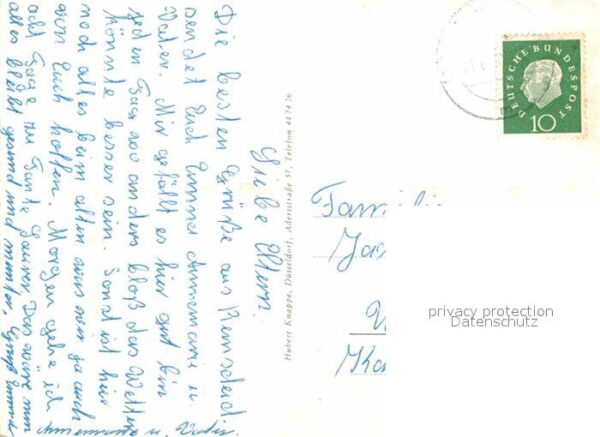 Liebe Eltern.
Die besten Grüße aus Remscheid
sendet Euch Emmi Annemarie u.
Vater. Mir gefällt es hier gut bin
jeden Tag wo anders bloß das Wetter
könnte besser sein. Sonst ist hier
noch alles beim alten was wir ja auch
von Euch hoffen. Morgen gehe ich
acht Tage zu Tante Laura. Das wäre nun
alles bleibt gesund und munter. Gruß Emmi
Annemarie u. Vater.
Hubert Knappe, Düsseldorf, Adersstraße 57, Telefon 447426
DEUTSCHE BUNDESPOST
10
Fam
privacy protection
Datenschutz